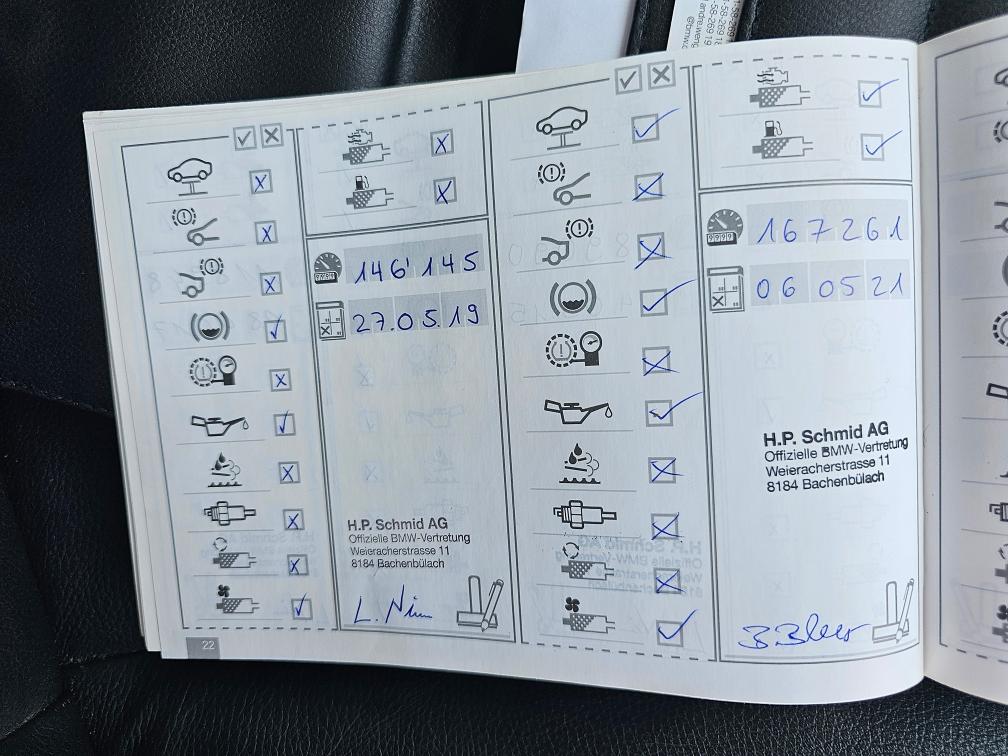 146'145
27.05.19
H.P. Schmid AG
Offizielle BMW-Vertretung
Weieracherstrasse 11
8184 Bachenbülach
22
167261
06 05 21
H.P. Schmid AG
Offizielle BMW-Vertretung
Weieracherstrasse 11
8184 Bachenbülach